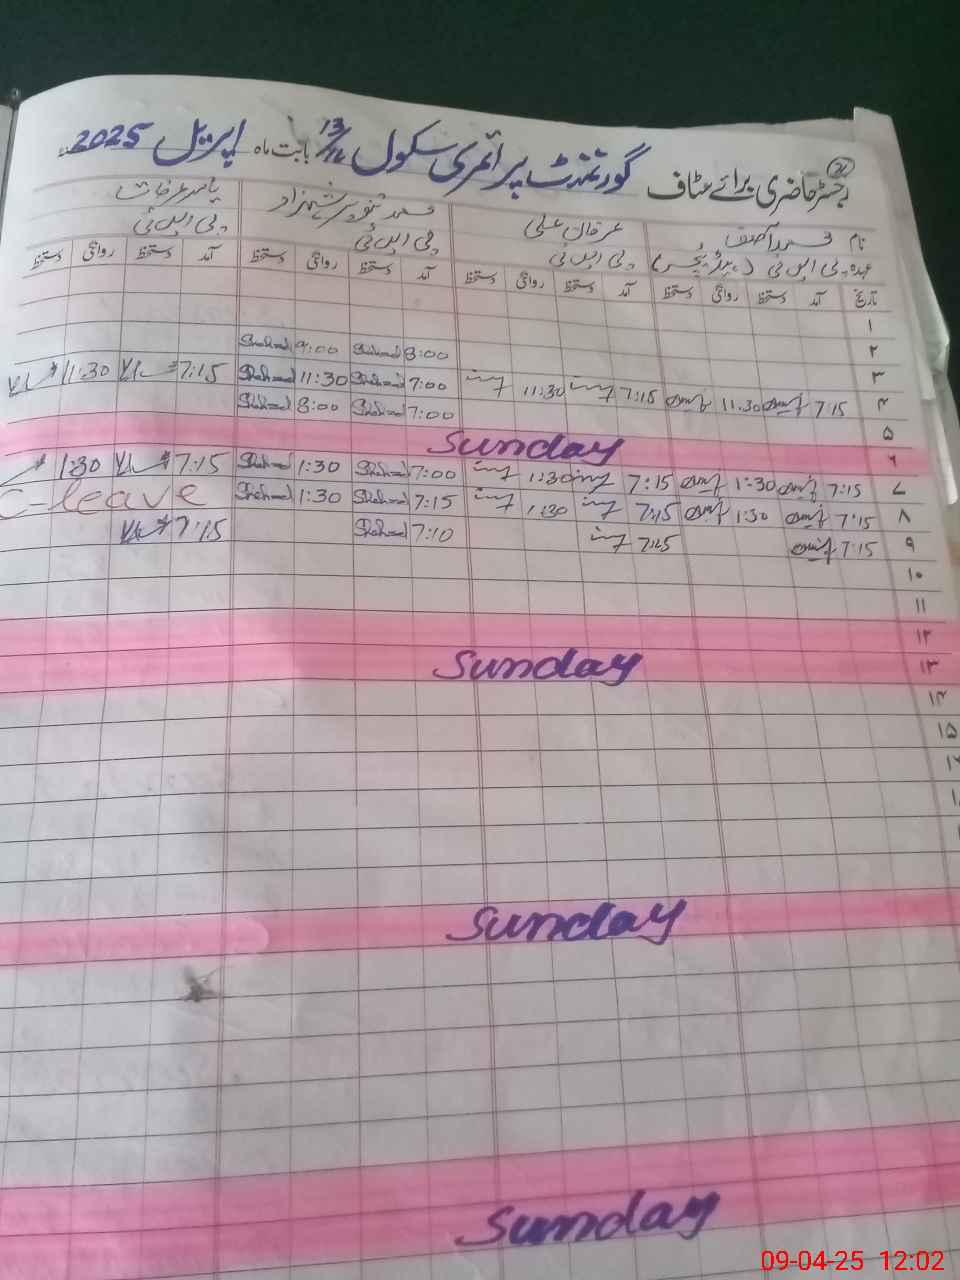 رجسٹر حاضری برائے سٹاف گورنمنٹ پرائمری سکول 13/ بابت ماہ اپریل 2025
نام محمد آصف عرفان علی محمد تنویر شہزاد یاسر عرفات
عہدہ پی ایس ٹی (ہیڈ ٹیچر) پی ایس ٹی پی ایس ٹی پی ایس ٹی
تاریخ آمد دستخط روانگی دستخط آمد دستخط روانگی دستخط آمد دستخط روانگی دستخط آمد دستخط روانگی دستخط
۱
۲ 8:00 Shahzad 9:00 Shahzad
۳ 7:15 11:30 7:15 11:30 7:00 Shahzad 11:30 Shahzad 7:15 11:30
۴ 7:00 Shahzad 8:00 Shahzad
۵
۶ Sunday
۷ 7:15 1:30 7:15 1:30 7:00 Shahzad 1:30 Shahzad 7:15 1:30
۸ 7:15 1:30 7:15 1:30 7:15 Shahzad 1:30 Shahzad C-leave
۹ 7:15 7:15 7:10 Shahzad 7:15
۱۰
۱۱
۱۲
۱۳ Sunday
۱۴
۱۵
Sunday
Sunday
09-04-25 12:02